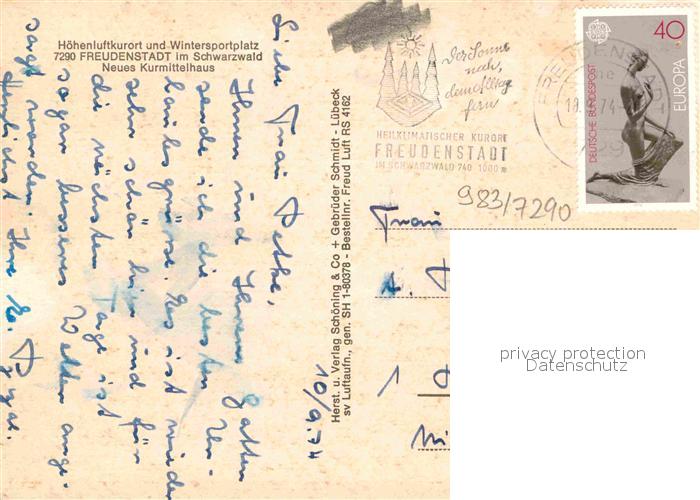 Höhenluftkurort und Wintersportplatz
7290 FREUDENSTADT im Schwarzwald
Neues Kurmittelhaus
Der Sonne
nach,
dem Alltag
fern
HEILKLIMATISCHER KURORT
FREUDENSTADT
IM SCHWARZWALD 740-1000 m
40
EUROPA
DEUTSCHE BUNDESPOST
983/7290
Herst. u. Verlag Schöning & Co + Gebrüder Schmidt - Lübeck
sv Luftaufn., gen. SH 1-80378 - Bestellnr. Freud Luft RS 4162
10/9.74
Liebe Frau
Ihnen und Ihrem Gatten
sende ich die besten Ur-
laubsgrüsse. Es ist wieder
sehr schön hier und für
die nächsten Tage ist
sogar besseres Wetter ange-
sagt worden. Herzlichst Ihre
Frau
privacy protection
Datenschutz